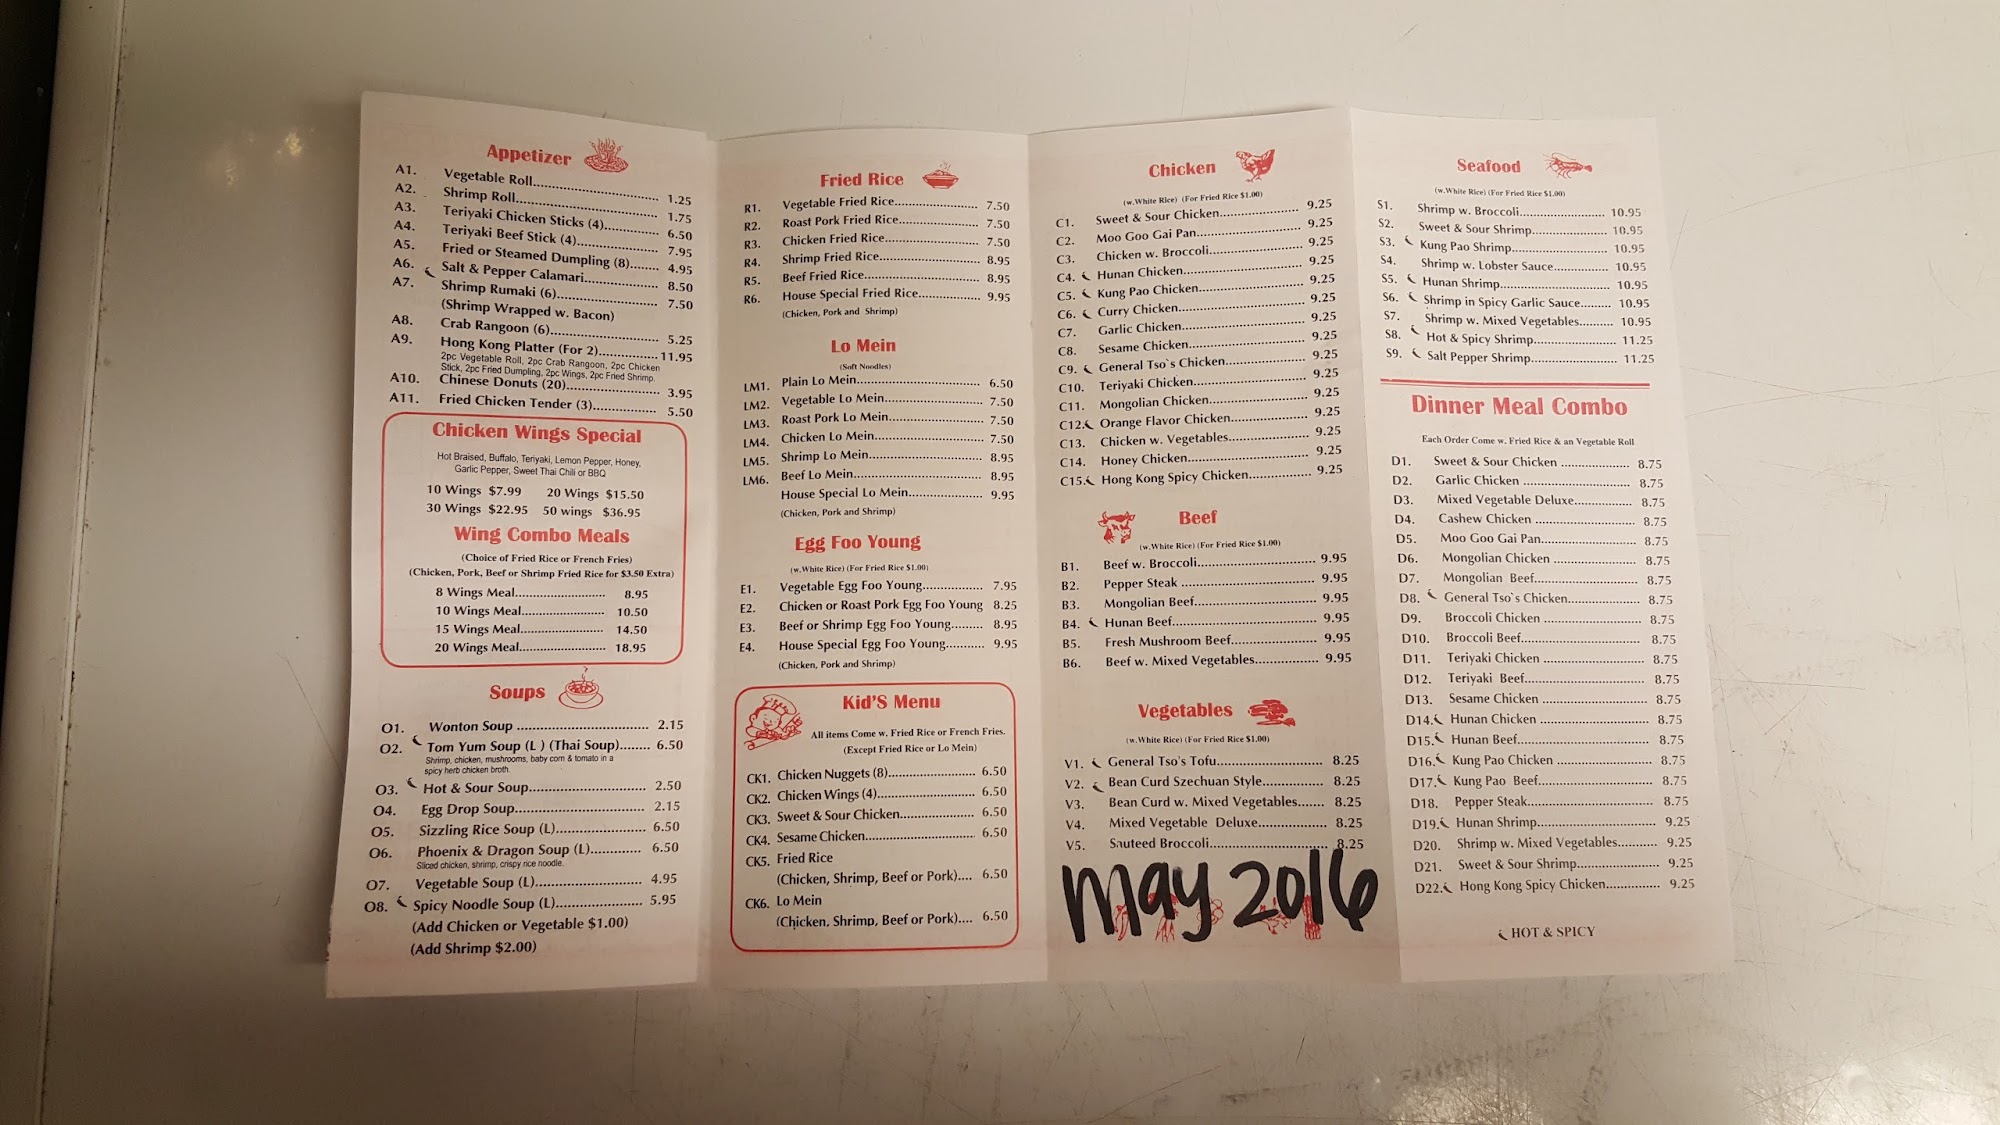 Appetizer
A1. Vegetable Roll.......... 1.25
A2. Shrimp Roll.......... 1.75
A3. Teriyaki Chicken Sticks (4).......... 6.50
A4. Teriyaki Beef Stick (4).......... 7.95
A5. Fried or Steamed Dumpling (8)....... 4.95
A6. Salt & Pepper Calamari.......... 8.50
A7. Shrimp Rumaki (6).......... 7.50
(Shrimp Wrapped w. Bacon)
A8. Crab Rangoon (6).......... 5.25
A9. Hong Kong Platter (For 2).......... 11.95
2pc Vegetable Roll, 2pc Crab Rangoon, 2pc Chicken
Stick, 2pc Fried Dumpling, 2pc Wings, 2pc Fried Shrimp.
A10. Chinese Donuts (20).......... 3.95
A11. Fried Chicken Tender (3).......... 5.50
Chicken Wings Special
Hot Braised, Buffalo, Teriyaki, Lemon Pepper, Honey,
Garlic Pepper, Sweet Thai Chili or BBQ
10 Wings $7.99 20 Wings $15.50
30 Wings $22.95 50 wings $36.95
Wing Combo Meals
(Choice of Fried Rice or French Fries)
(Chicken, Pork, Beef or Shrimp Fried Rice for $3.50 Extra)
8 Wings Meal.......... 8.95
10 Wings Meal.......... 10.50
15 Wings Meal.......... 14.50
20 Wings Meal.......... 18.95
Soups
O1. Wonton Soup .......... 2.15
O2. Tom Yum Soup (L ) (Thai Soup)........ 6.50
Shrimp, chicken, mushrooms, baby corn & tomato in a
spicy herb chicken broth.
O3. Hot & Sour Soup.......... 2.50
O4. Egg Drop Soup.......... 2.15
O5. Sizzling Rice Soup (L).......... 6.50
O6. Phoenix & Dragon Soup (L).......... 6.50
Sliced chicken, shrimp, crispy rice noodle.
O7. Vegetable Soup (L).......... 4.95
O8. Spicy Noodle Soup (L).......... 5.95
(Add Chicken or Vegetable $1.00)
(Add Shrimp $2.00)
Fried Rice
R1. Vegetable Fried Rice.......... 7.50
R2. Roast Pork Fried Rice.......... 7.50
R3. Chicken Fried Rice.......... 7.50
R4. Shrimp Fried Rice.......... 8.95
R5. Beef Fried Rice.......... 8.95
R6. House Special Fried Rice.......... 9.95
(Chicken, Pork and Shrimp)
Lo Mein
(Soft Noodles)
LM1. Plain Lo Mein.......... 6.50
LM2. Vegetable Lo Mein.......... 7.50
LM3. Roast Pork Lo Mein.......... 7.50
LM4. Chicken Lo Mein.......... 7.50
LM5. Shrimp Lo Mein.......... 8.95
LM6. Beef Lo Mein.......... 8.95
House Special Lo Mein.......... 9.95
(Chicken, Pork and Shrimp)
Egg Foo Young
(w.White Rice) (For Fried Rice $1.00)
E1. Vegetable Egg Foo Young.......... 7.95
E2. Chicken or Roast Pork Egg Foo Young 8.25
E3. Beef or Shrimp Egg Foo Young........ 8.95
E4. House Special Egg Foo Young.......... 9.95
(Chicken, Pork and Shrimp)
Kid'S Menu
All items Come w. Fried Rice or French Fries.
(Except Fried Rice or Lo Mein)
CK1. Chicken Nuggets (8).......... 6.50
CK2. Chicken Wings (4).......... 6.50
CK3. Sweet & Sour Chicken.......... 6.50
CK4. Sesame Chicken.......... 6.50
CK5. Fried Rice
(Chicken, Shrimp, Beef or Pork).... 6.50
CK6. Lo Mein
(Chicken, Shrimp, Beef or Pork).... 6.50
Chicken
(w.White Rice) (For Fried Rice $1.00)
C1. Sweet & Sour Chicken.......... 9.25
C2. Moo Goo Gai Pan.......... 9.25
C3. Chicken w. Broccoli.......... 9.25
C4. Hunan Chicken.......... 9.25
C5. Kung Pao Chicken.......... 9.25
C6. Curry Chicken.......... 9.25
C7. Garlic Chicken.......... 9.25
C8. Sesame Chicken.......... 9.25
C9. General Tso`s Chicken.......... 9.25
C10. Teriyaki Chicken.......... 9.25
C11. Mongolian Chicken.......... 9.25
C12. Orange Flavor Chicken.......... 9.25
C13. Chicken w. Vegetables.......... 9.25
C14. Honey Chicken.......... 9.25
C15. Hong Kong Spicy Chicken.......... 9.25
Beef
(w.White Rice) (For Fried Rice $1.00)
B1. Beef w. Broccoli.......... 9.95
B2. Pepper Steak .......... 9.95
B3. Mongolian Beef.......... 9.95
B4. Hunan Beef.......... 9.95
B5. Fresh Mushroom Beef.......... 9.95
B6. Beef w. Mixed Vegetables.......... 9.95
Vegetables
(w.White Rice) (For Fried Rice $1.00)
V1. General Tso's Tofu.......... 8.25
V2. Bean Curd Szechuan Style.......... 8.25
V3. Bean Curd w. Mixed Vegetables....... 8.25
V4. Mixed Vegetable Deluxe.......... 8.25
V5. Sauteed Broccoli.......... 8.25
may 2016
Seafood
(w.White Rice) (For Fried Rice $1.00)
S1. Shrimp w. Broccoli.......... 10.95
S2. Sweet & Sour Shrimp.......... 10.95
S3. Kung Pao Shrimp.......... 10.95
S4. Shrimp w. Lobster Sauce.......... 10.95
S5. Hunan Shrimp.......... 10.95
S6. Shrimp in Spicy Garlic Sauce........ 10.95
S7. Shrimp w. Mixed Vegetables.......... 10.95
S8. Hot & Spicy Shrimp.......... 11.25
S9. Salt Pepper Shrimp.......... 11.25
Dinner Meal Combo
Each Order Come w. Fried Rice & an Vegetable Roll
D1. Sweet & Sour Chicken .......... 8.75
D2. Garlic Chicken .......... 8.75
D3. Mixed Vegetable Deluxe.......... 8.75
D4. Cashew Chicken .......... 8.75
D5. Moo Goo Gai Pan.......... 8.75
D6. Mongolian Chicken .......... 8.75
D7. Mongolian Beef.......... 8.75
D8. General Tso`s Chicken.......... 8.75
D9. Broccoli Chicken .......... 8.75
D10. Broccoli Beef.......... 8.75
D11. Teriyaki Chicken .......... 8.75
D12. Teriyaki Beef.......... 8.75
D13. Sesame Chicken .......... 8.75
D14. Hunan Chicken .......... 8.75
D15. Hunan Beef.......... 8.75
D16. Kung Pao Chicken .......... 8.75
D17. Kung Pao Beef.......... 8.75
D18. Pepper Steak.......... 8.75
D19. Hunan Shrimp.......... 9.25
D20. Shrimp w. Mixed Vegetables.......... 9.25
D21. Sweet & Sour Shrimp.......... 9.25
D22. Hong Kong Spicy Chicken.......... 9.25
HOT & SPICY